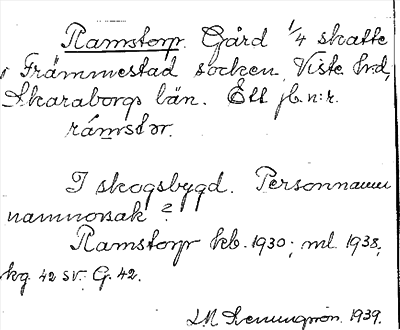 Ramstorp. Gård 1/4 skatte
i Främmestad socken, Viste hrd,
Skaraborgs län. Ett jb. n:r.
rámstər.
I skogsbygd. Personnamn
namnorsak?
Ramstorp kb. 1930; ml. 1938,
kg 42 sv. G. 42.
1939.